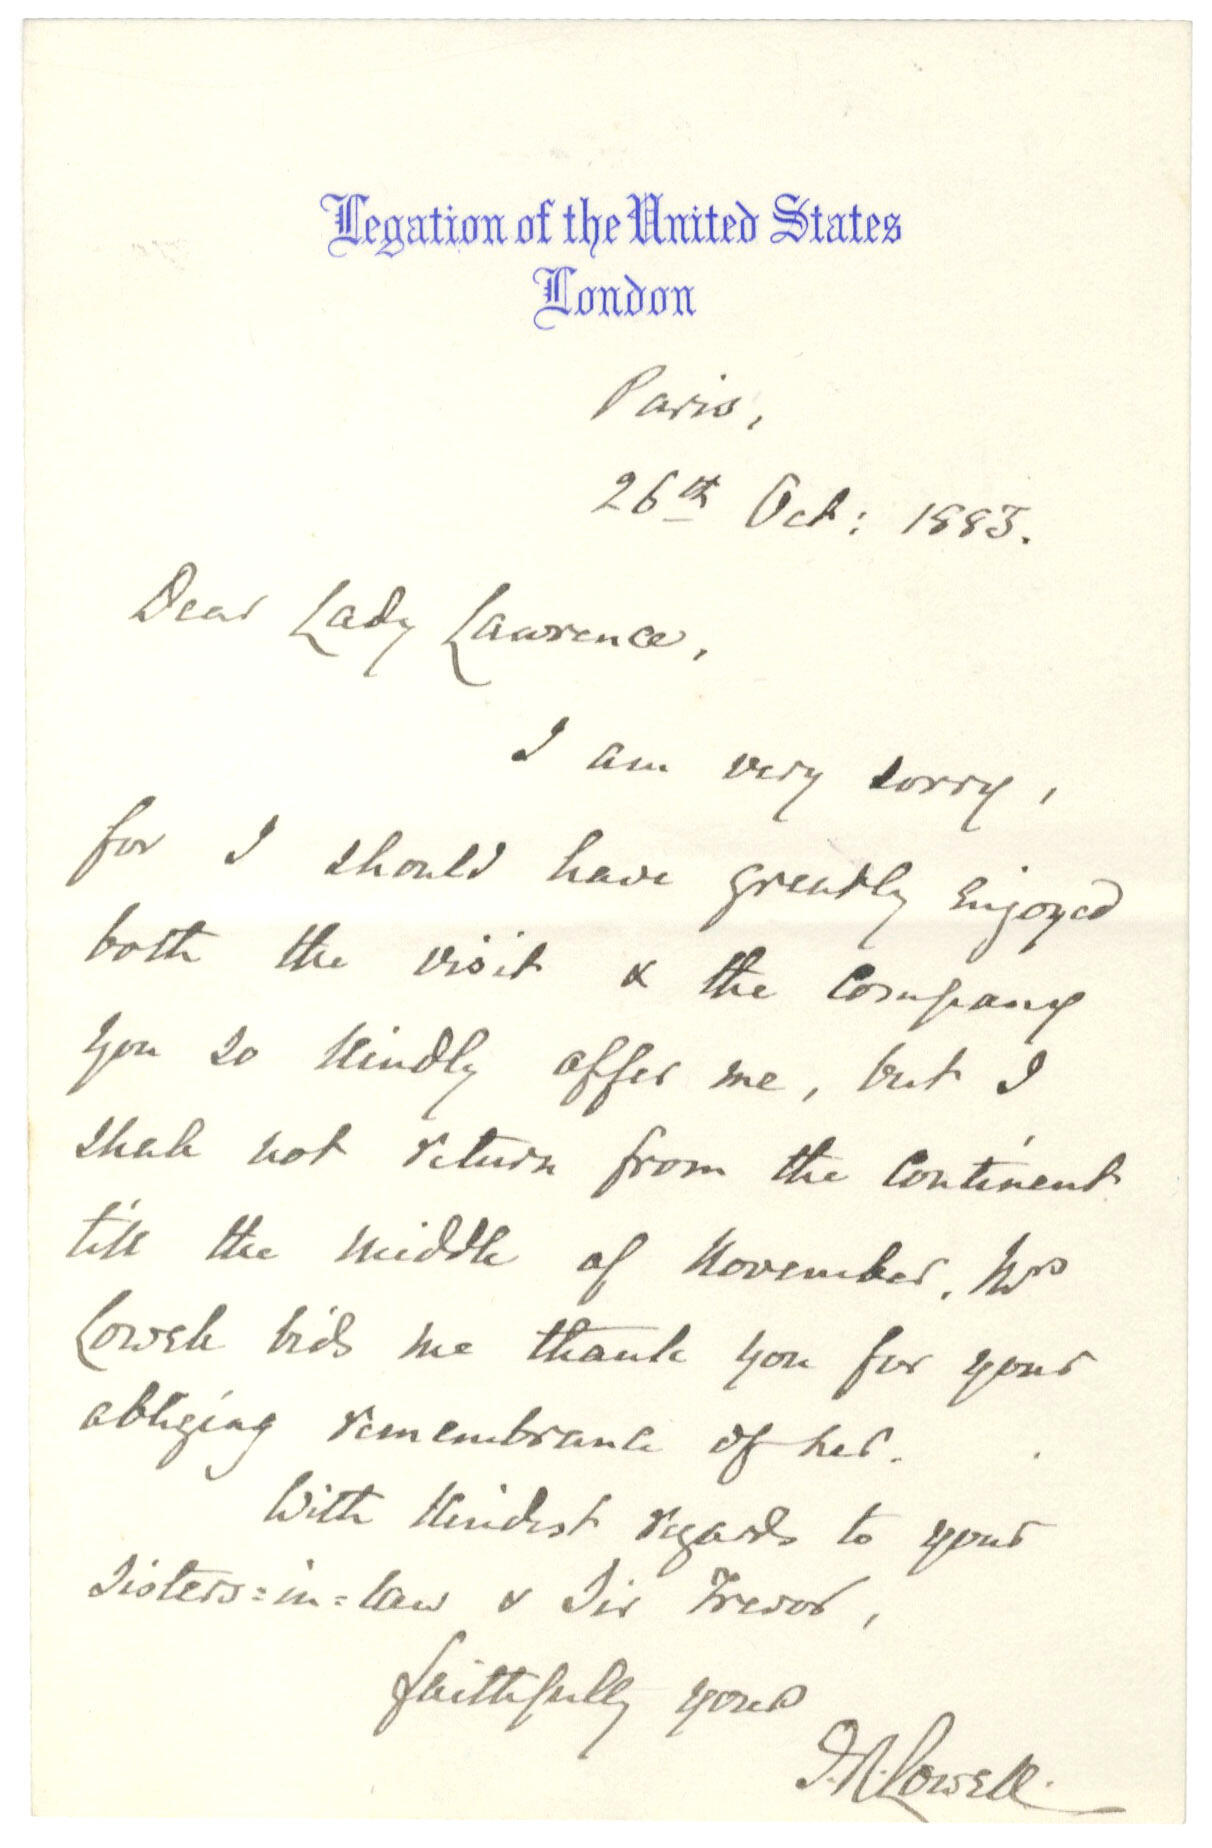 Legation of the United States
London
Paris,
26th Oct: 1883.
Dear Lady Lawrence,
I am very sorry,
for I should have greatly enjoyed
both the visit & the company
you so kindly offer me, but I
shall not return from the Continent
till the middle of November. Mrs
Lowell bids me thank you for your
obliging remembrance of her.
With kindest regards to your
sisters=in=law & Sir Trevor,
faithfully yours
J. R. Lowell.